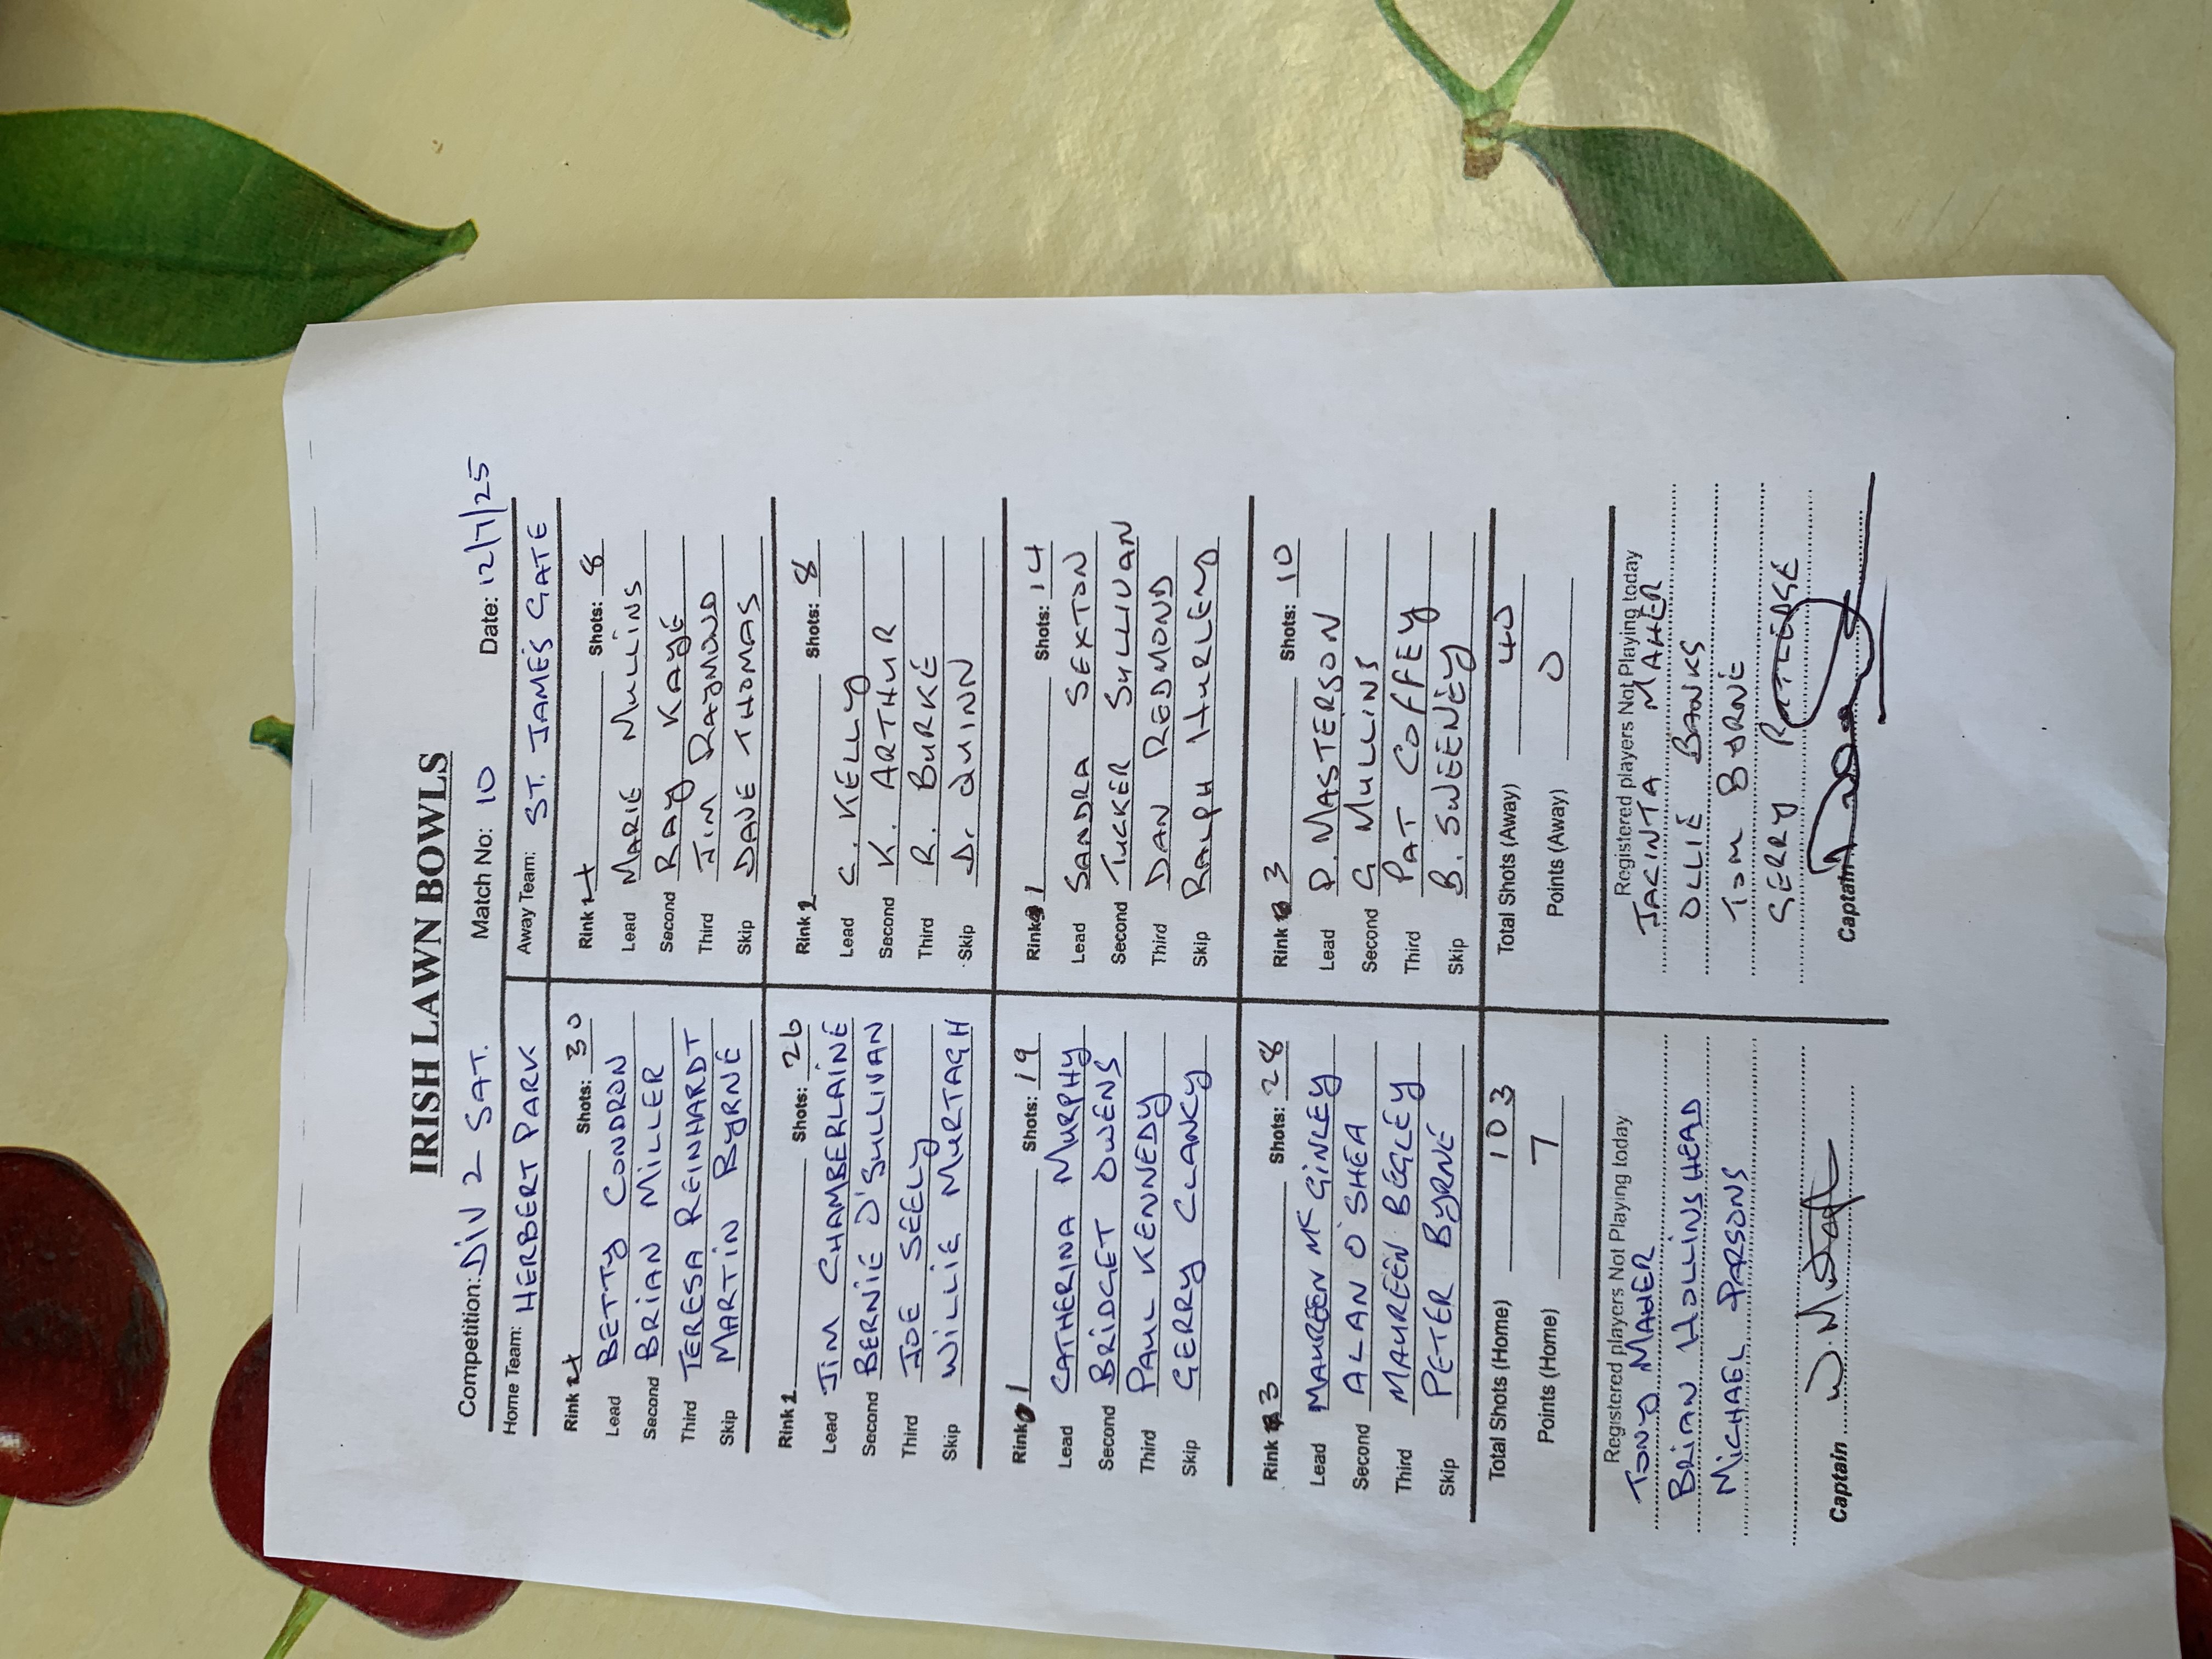 IRISH LAWN BOWLS
Competition: DIV 2 SAT. Match No: 10 Date: 12/7/25
Home Team: HERBERT PARK Away Team: ST. JAMES GATE
Rink 4 Shots: 30 Rink 4 Shots: 8
Lead BETTY CONDRON Lead MARIE MULLINS
Second BRIAN MILLER Second RAY KAYE
Third TERESA REINHARDT Third JIM RAYMOND
Skip MARTIN BYRNE Skip DAVE THOMAS
Rink 2 Shots: 26 Rink 2 Shots: 8
Lead JIM CHAMBERLAINE Lead C. KELLY
Second BERNIE O'SULLIVAN Second K. ARTHUR
Third JOE SEELY Third R. BURKE
Skip WILLIE MURTAGH Skip D. QUINN
Rink 1 Shots: 19 Rink 1 Shots: 14
Lead CATHERINA MURPHY Lead SANDRA SEXTON
Second BRIDGET OWENS Second TUCKER SULLIVAN
Third PAUL KENNEDY Third DAN REDMOND
Skip GERRY CLANCY Skip RALPH HURLEY
Rink 3 Shots: 28 Rink 3 Shots: 10
Lead MAUREEN MC GINLEY Lead P. MASTERSON
Second ALAN O'SHEA Second G MULLINS
Third MAUREEN BEGLEY Third PAT COFFEY
Skip PETER BYRNE Skip B. SWEENEY
Total Shots (Home) 103 Total Shots (Away) 40
Points (Home) 7 Points (Away) 0
Registered players Not Playing today Registered players Not Playing today
TONY MAHER JACINTA MAHER
BRIAN HOLLINSHEAD OLLIE BANKS
MICHAEL PARSONS TOM BYRNE
GERRY
Captain Captain